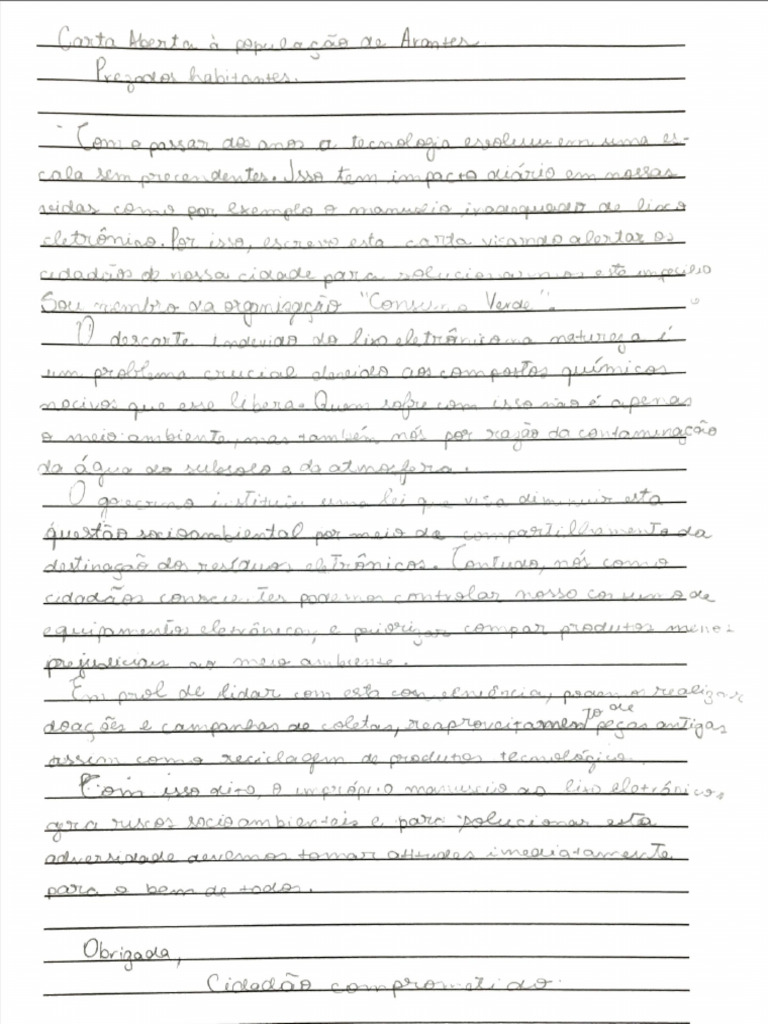 Carta Aberta à população de Arantes.
Prezados habitantes.
Com o passar dos anos a tecnologia evoluiu em uma es-
cala sem precendentes. Isso tem impacto diário em nossas
vidas como por exemplo o manuseio inadequado de lixo
eletrônico. Por isso, escrevo esta carta visando alertar os
cidadãos de nossa cidade para solucionarmos este empecilio.
Sou membro da organização "Consumo Verde".
O descarte indevido do lixo eletrônico na natureza é
um problema crucial devido aos compostos químicos
nocivos que esse libera. Quem sofre com isso não é apenas
o meio ambiente, mas também nós por razão da contaminação
da água do subsolo e da atmosfera.
O governo instituiu uma lei que visa diminuir esta
questão socioambiental por meio de compartilhamento da
destinação dos resíduos eletrônicos. Contudo, nós como
cidadãos conscientes podemos controlar nosso consumo de
equipamentos eletrônicos, e priorizar compar produtos menos
prejudiciais ao meio ambiente.
Em prol de lidar com esta realizar
doações e campanhas de coletas, reaproveitamento de peças antigas
assim como reciclagem de produtos tecnológico.
Com isso dito, o impróprio manuseio do lixo eletrônico,
gera riscos socioambientais e para solucionar esta
adversidade devemos tomar attudes imediatamente
para o bem de todos.
Obrigada,
Cidadão comprometido.